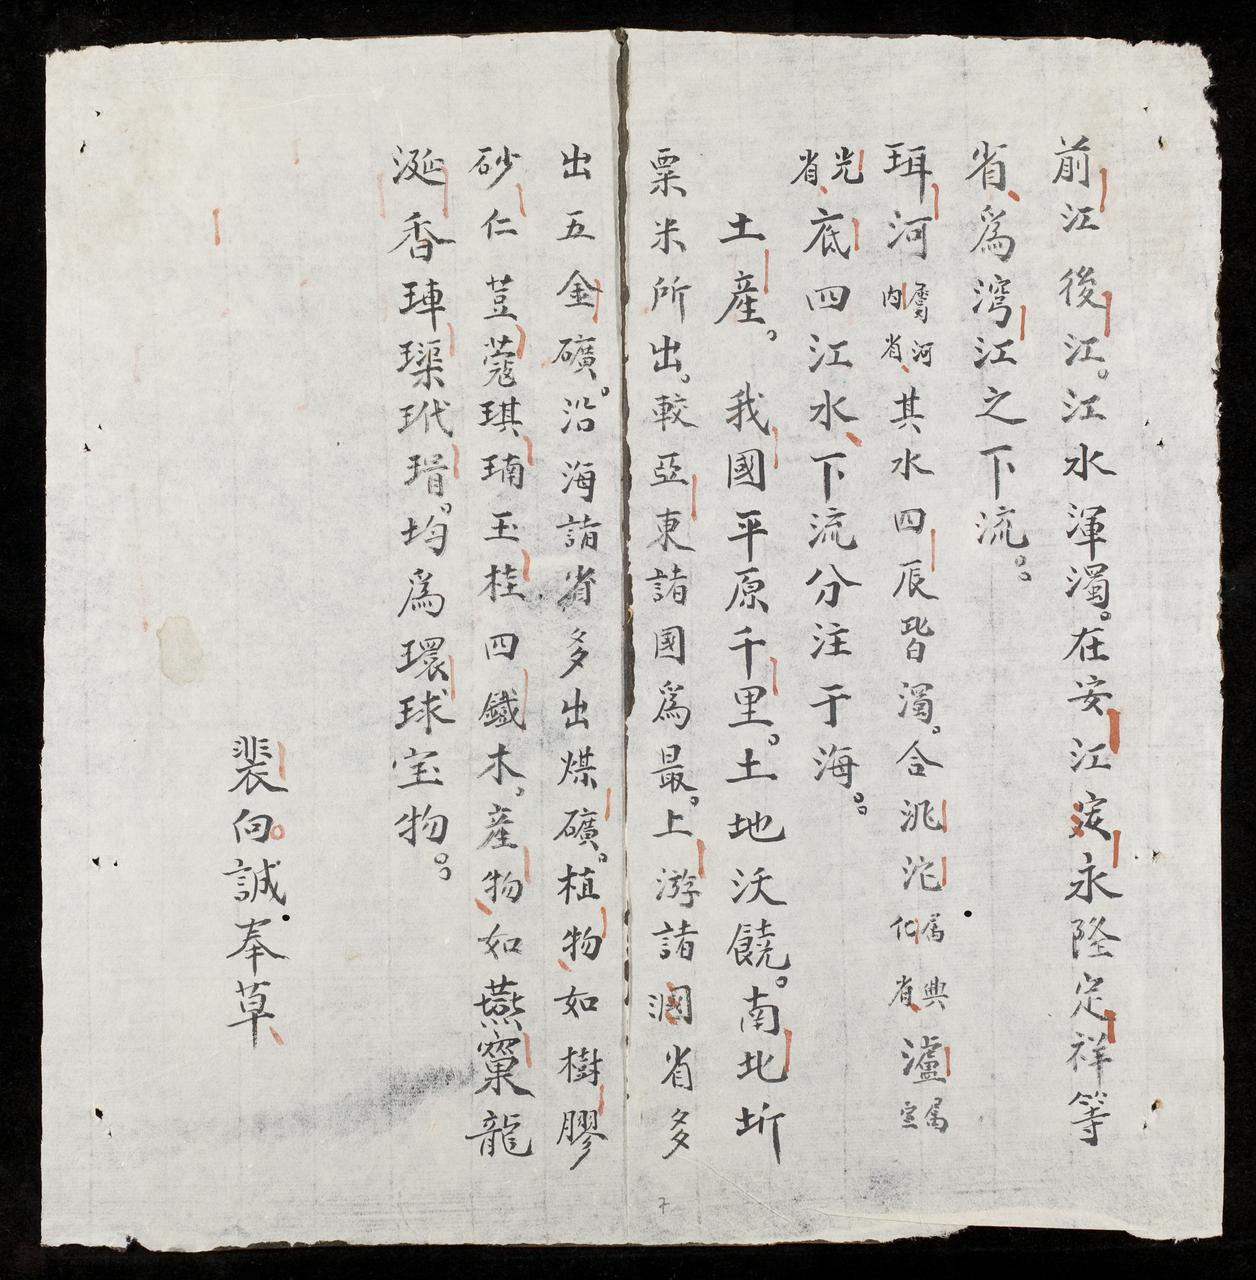 前江後江。江水渾濁。在安江定永隆定祥等
省、爲灣江之下流。
珥河屬河内省、其水四辰皆濁。合洮沱属興化省、瀘属宣
光省、底四江水、下流分注于海。
土産。我國平原千里。土地沃饒。南北圻
粟米所出。較亞東諸國爲最。上游諸省多
出五金礦。沿海諸省多出煤礦。植物、如樹膠
砂仁荳蔻琪瑀玉桂四鐵木。產物、如燕窠龍
涎香琲璖玳瑁。均爲環球宝物。
裴向誠奉草、
7